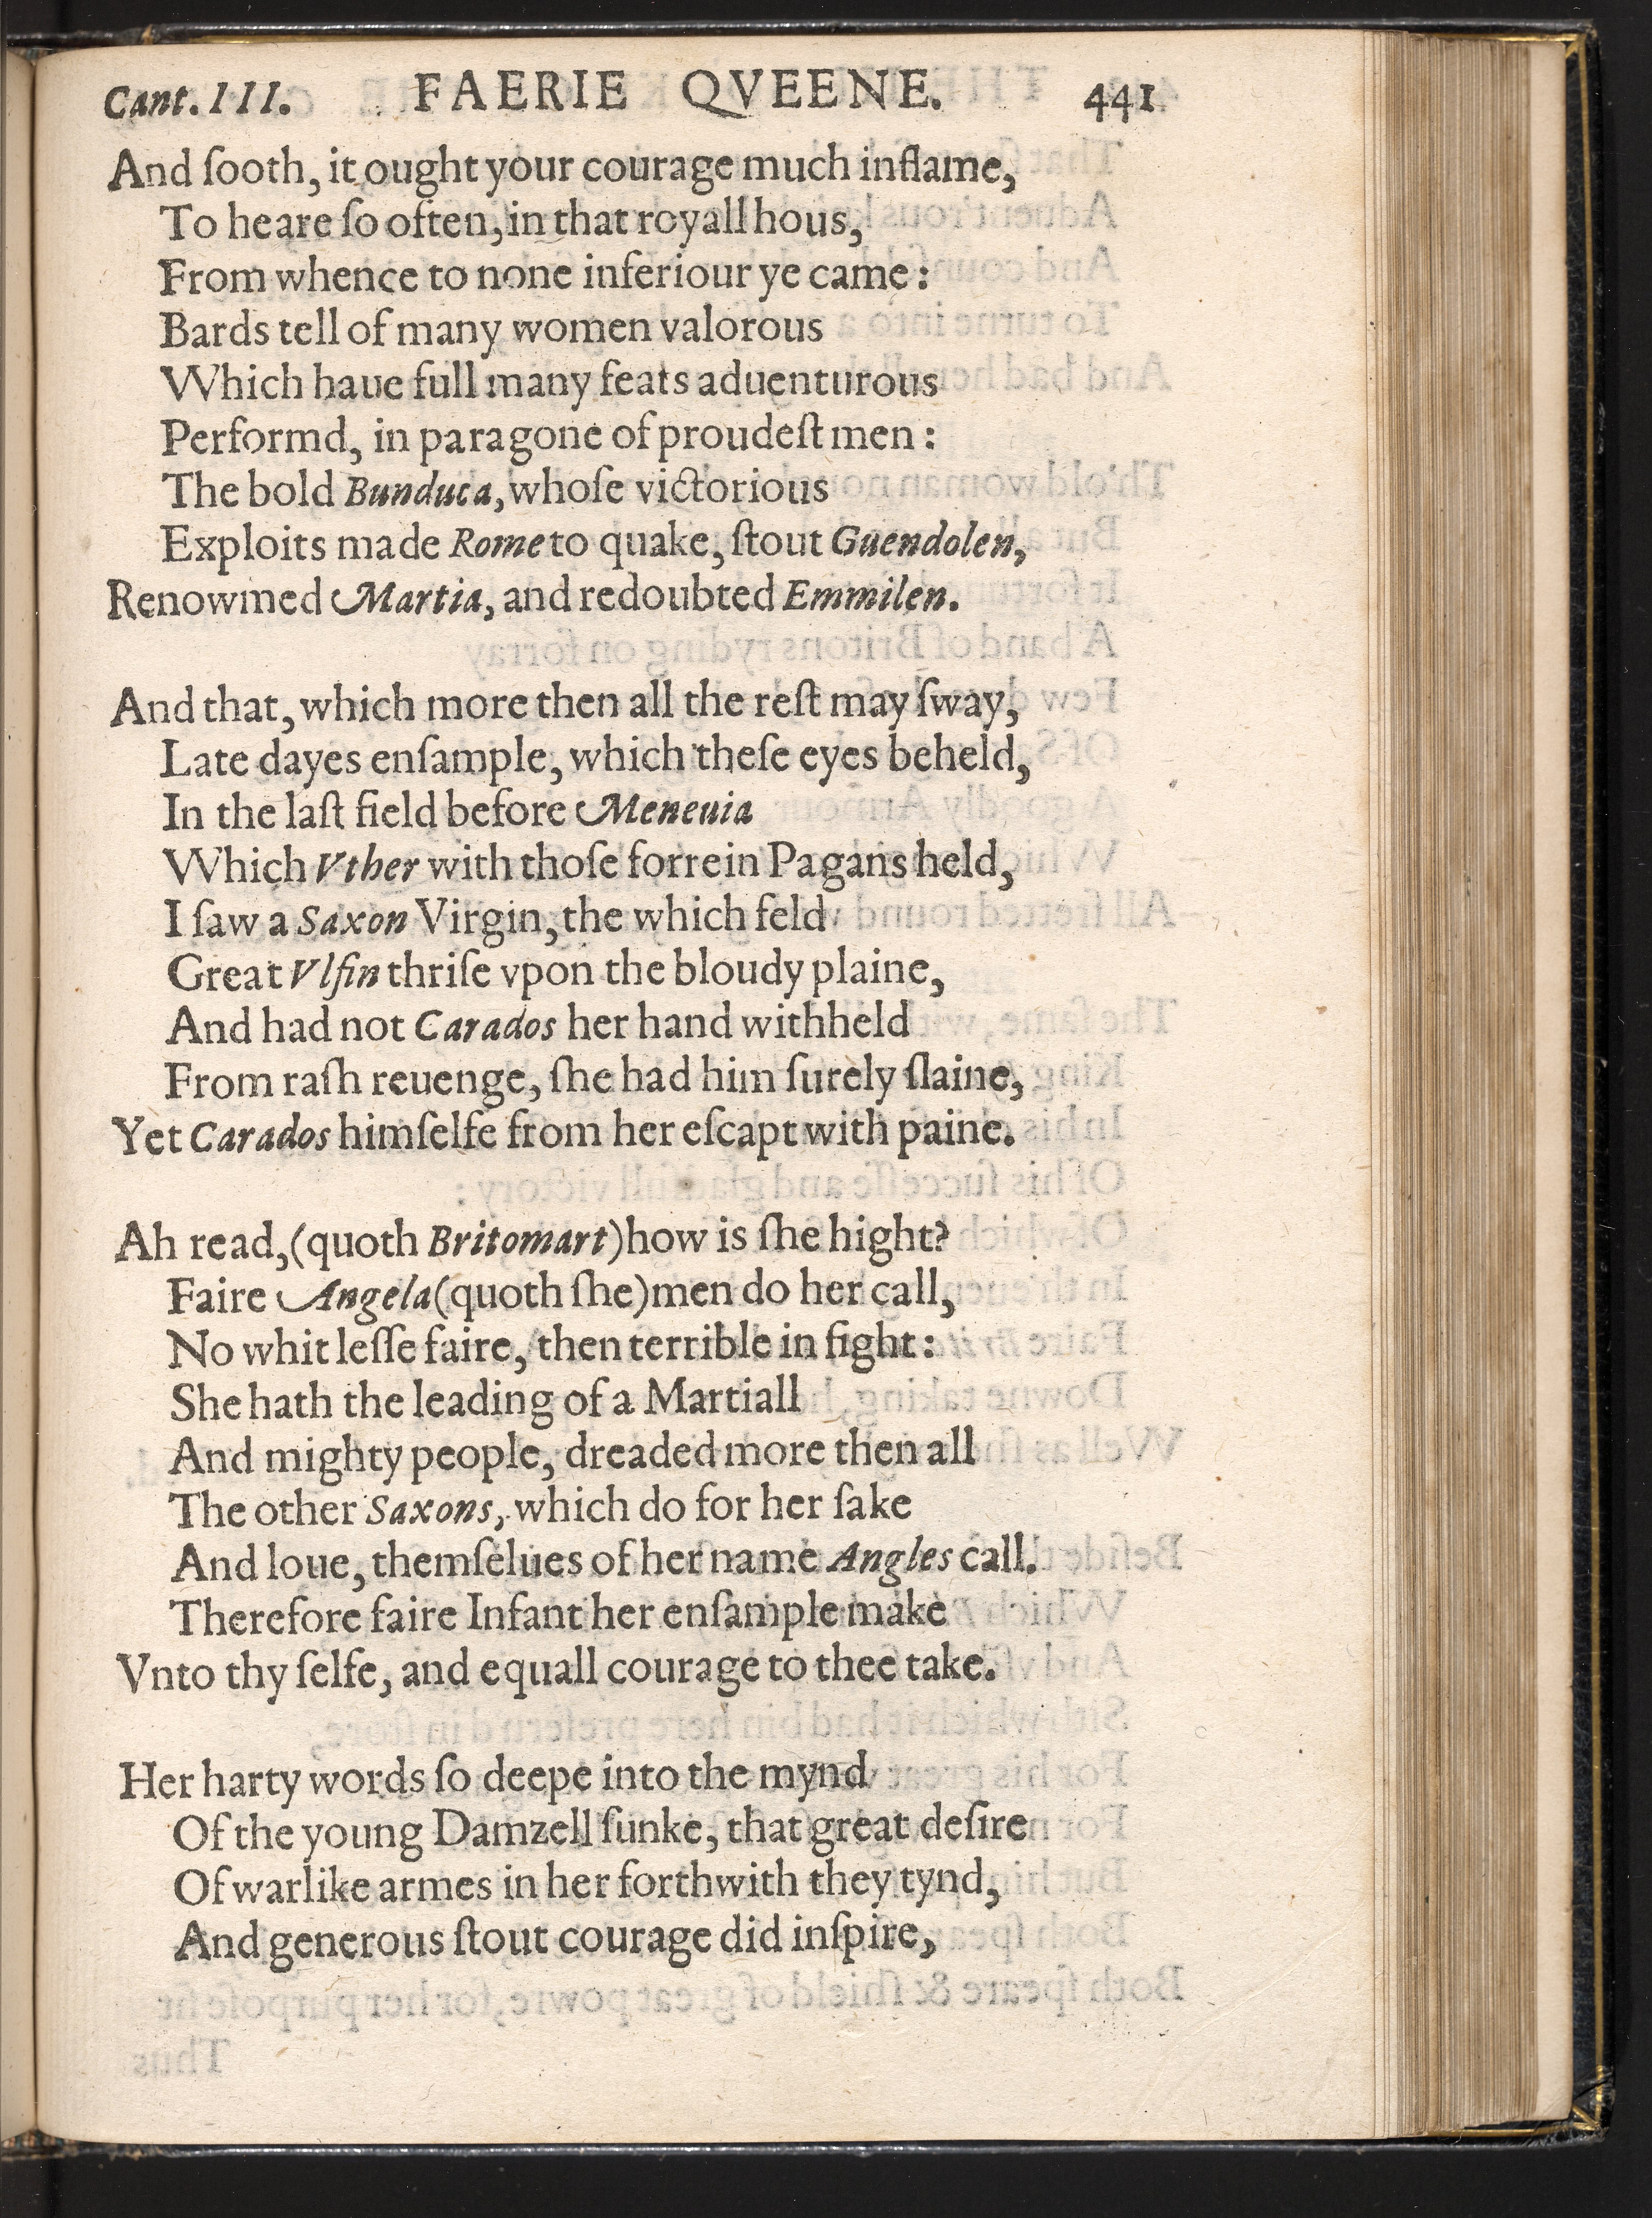 Cant. III. FAERIE QVEENE. 441
And ſooth, it ought your courage much inflame,
To heare ſo often, in that royall hous,
From whence to none inferiour ye came:
Bards tell of many women valorous
Which haue full many feats aduenturous
Performd, in paragone of proudeſt men:
The bold Bunduca, whoſe victorious
Exploits made Rome to quake, ſtout Guendolen,
Renowmed Martia, and redoubted Emmilen.
And that, which more then all the reſt may ſway,
Late dayes enſample, which theſe eyes beheld,
In the laſt field before Meneuia
Which Vther with thoſe forrein Pagans held,
I ſaw a Saxon Virgin, the which feld
Great Vlfin thriſe vpon the bloudy plaine,
And had not Carados her hand withheld
From raſh reuenge, ſhe had him ſurely ſlaine,
Yet Carados himſelfe from her eſcapt with paine.
Ah read, (quoth Britomart) how is ſhe hight?
Faire Angela (quoth ſhe) men do her call,
No whit leſſe faire, then terrible in fight:
She hath the leading of a Martiall
And mighty people, dreaded more then all
The other Saxons, which do for her ſake
And loue, themſelues of her name Angles call.
Therefore faire Infant her enſample make
Vnto thy ſelfe, and equall courage to thee take.
Her harty words ſo deepe into the mynd
Of the young Damzell ſunke, that great deſire
Of warlike armes in her forthwith they tynd,
And generous ſtout courage did inſpire,